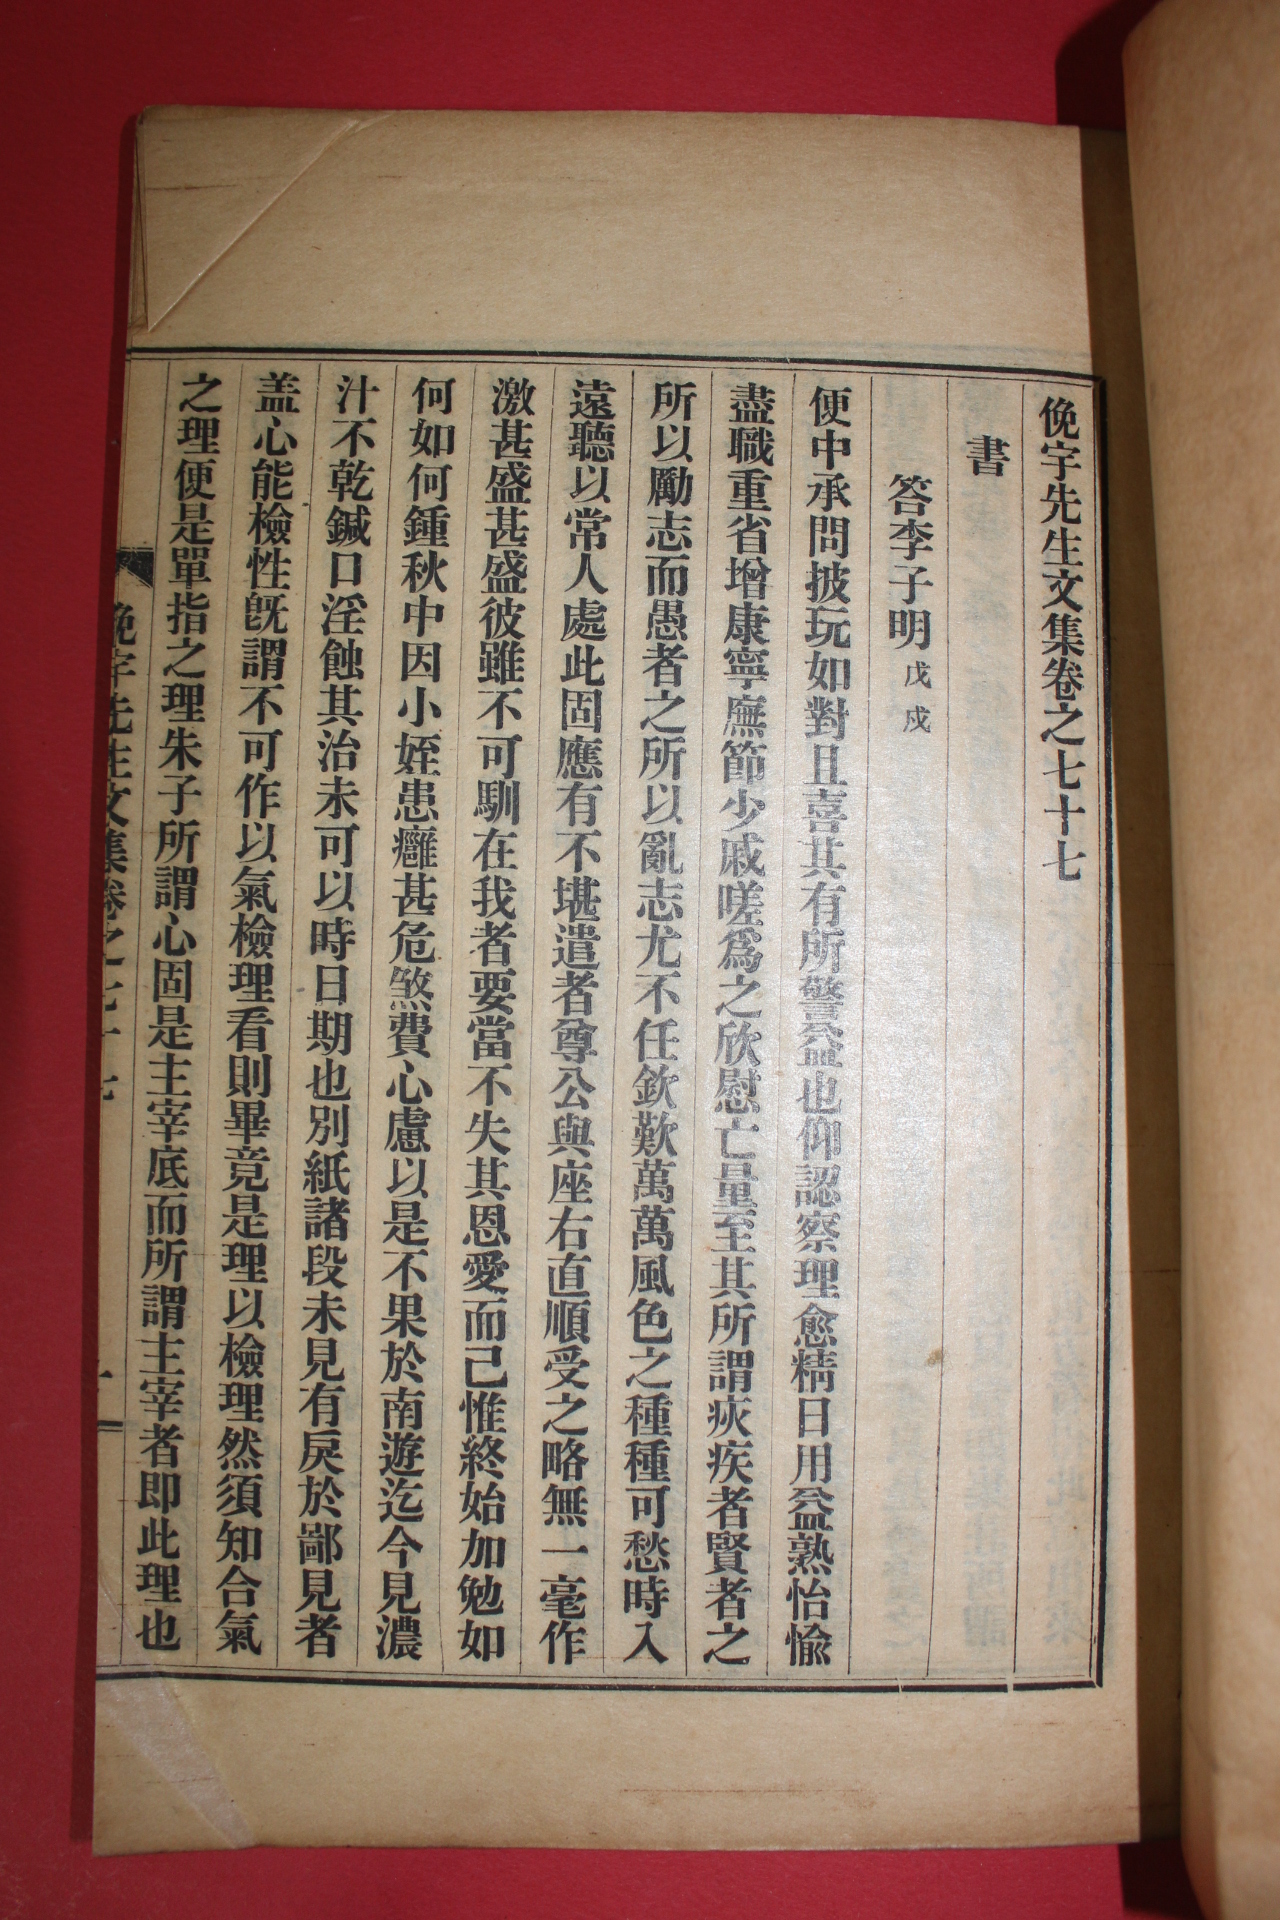 俛宇先生文集卷之七十七
書
答李子明 戊戌
便中承問披玩如對且喜其有所警益也仰認察理愈精日用益熟怡愉
盡職重省增康寧廡節少戚嗟爲之欣慰亡量至其所謂疢疾者賢者之
所以勵志而愚者之所以亂志尤不任欽歎萬萬風色之種種可愁時入
遠聽以常人處此固應有不堪遣者尊公與座右直順受之略無一毫作
激甚盛甚盛彼雖不可馴在我者要當不失其恩愛而已惟終始加勉如
何如何鍾秋中因小姪患癰甚危煞費心慮以是不果於南遊迄今見濃
汁不乾鍼口淫蝕其治未可以時日期也別紙諸段未見有戾於鄙見者
盖心能檢性旣謂不可作以氣檢理看則畢竟是理以檢理然須知合氣
之理便是單指之理朱子所謂心固是主宰底而所謂主宰者即此理也
俛宇先生文集卷之七十七 一